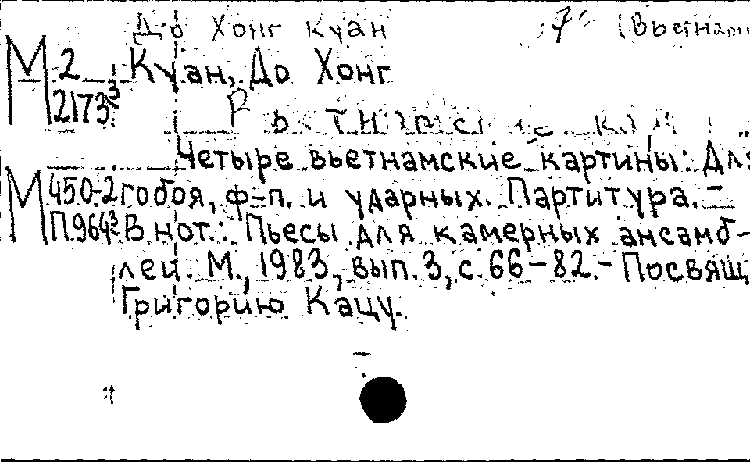 До Хонг Куан (Вьетнам
М 2 Куан, До Хонг
2173³
Четыре вьетнамские картины: Для
М 450-2 гобоя, ф-п. и ударных. Партитура. –
П.964³ В нот.: Пьесы для камерных ансамб-
лей. М., 1983, вып. 3, с. 66–82. – Посвящ.
Григорию Кацу.